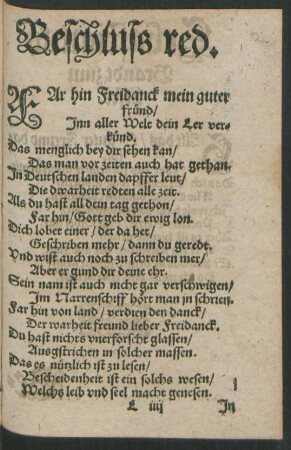 Beschluss red.
FAr hin Freidanck mein guter
fründ/
Inn aller Welt dein Ler ver-
künd.
Das menglich bey dir sehen kan/
Das man vor zeiten auch hat gethan.
In Deutschen landen dapffer leut/
Die dwarheit redten alle zeit.
Als du hast all dein tag gethon/
Far hin/ Gott geb dir ewig lon.
Dich lobet einer/ der da het/
Geschriben mehr/ dann du geredt.
Vnd wist auch noch zu schreiben mer/
Aber er gund dir deine ehr.
Sein nam ist auch nicht gar verschwigen/
Im Narrenschiff hört man jn schrien.
Far hin von land/ verdien den danck/
Der warheit freund lieber Freidanck.
Du hast nichts vnerforscht glassen/
Ausgstrichen in solcher massen.
Das es nützlich ist zu lesen/
Bescheidenheit ist ein solchs wesen/
Welchs leib vnd seel macht genesen.
L iiij In